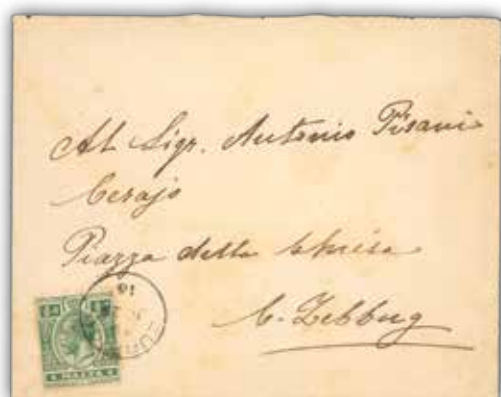 Al Sigr. Antonio Pisani
Cerajo
Piazza della Chiesa
C. Zebbug
MALTA